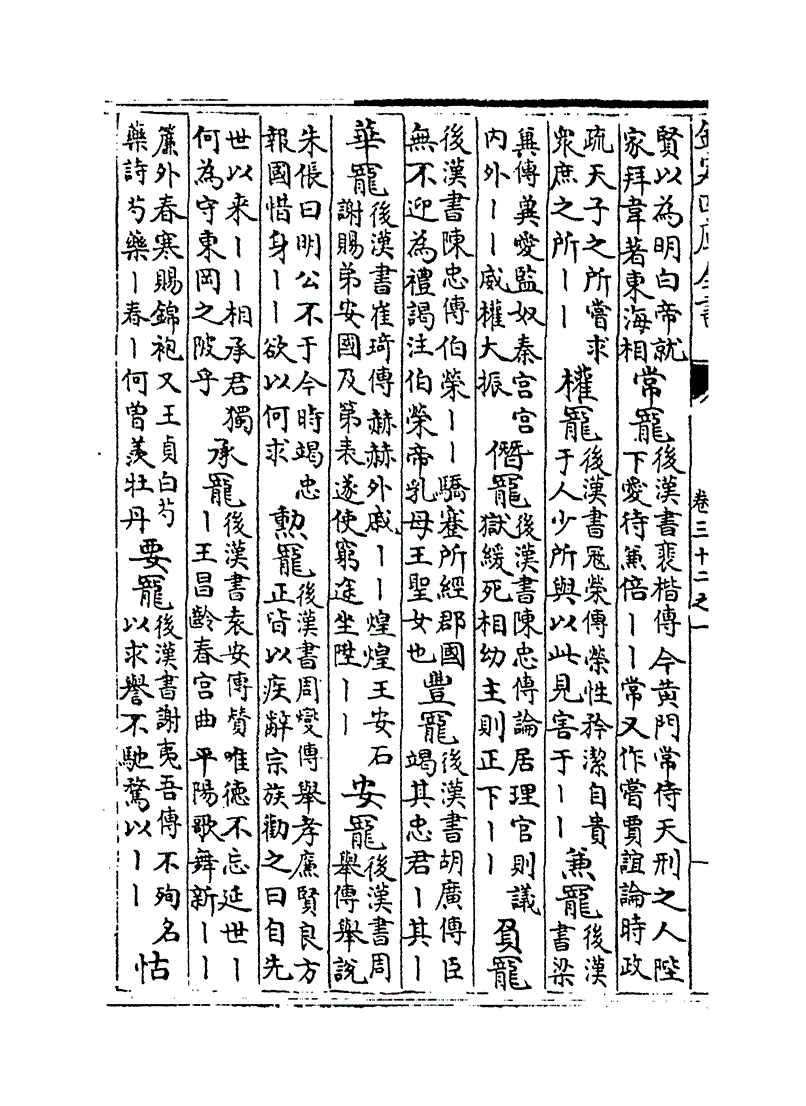 欽定四庫全書 卷三十二之一
賢以為明白帝就
家拜韋著東海相
常寵
後漢書裴楷傳今黄門常侍天刑之人陛
下愛待兼倍丨丨常又作嘗賈誼論時政
疏天子之所嘗求
衆庶之所丨丨
權寵
後漢書冦榮傳榮性矜潔自貴
于人少所與以此見害于丨丨
兼寵
後漢
書梁
冀傳冀愛監奴秦宫宫
内外丨丨威權大振
僭寵
後漢書陳忠傳論居理官則議
獄緩死相幼主則正下丨丨
負寵
後漢書陳忠傳伯榮丨丨驕蹇所經郡國
無不迎為禮謁注伯榮帝乳母王聖女也
豐寵
後漢書胡廣傳臣
竭其忠君丨其丨
華寵
後漢書崔琦傳赫赫外戚丨丨煌煌王安石
謝賜弟安國及第表遂使窮途坐陞丨丨
安寵
後漢書周
舉傳舉說
朱倀曰明公不于今時竭忠
報國惜身丨丨欲以何求
勲寵
後漢書周燮傳舉孝廉賢良方
正皆以疾辭宗族勸之曰自先
世以来丨丨相承君獨
何為守東岡之陂乎
承寵
後漢書袁安傳贊唯徳不忘延世丨
丨王昌齡春宫曲平陽歌舞新丨丨
簾外春寒賜錦袍又王貞白芍
藥詩芍藥丨春丨何曾羨牡丹
要寵
後漢書謝夷吾傳不殉名
以求譽不馳騖以丨丨
怙